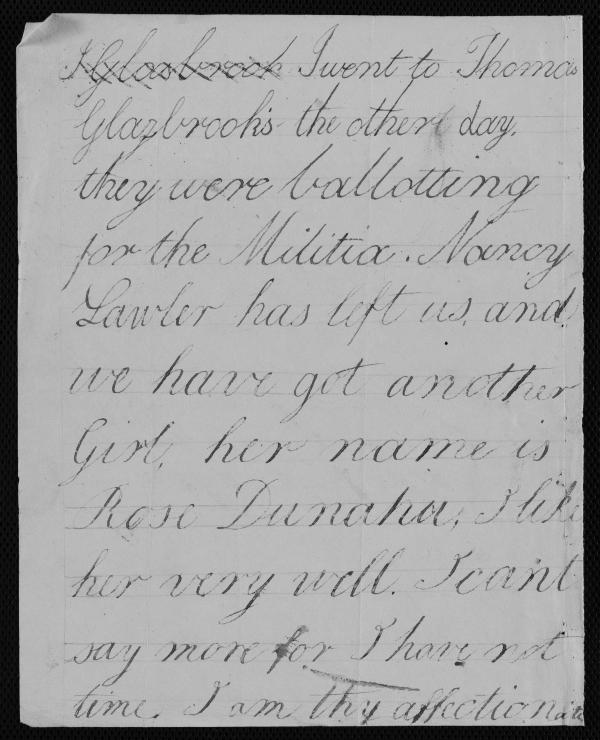 I Glasbrook I went to Thomas
Glazbrook's the other day,
they were ballotting
for the Militia. Nancy
Lawler has left us, and
we have got another
Girl, her name is
Rose Dunahu, I like
her very well. I cant
say more for I have not
time. I am thy affectionate